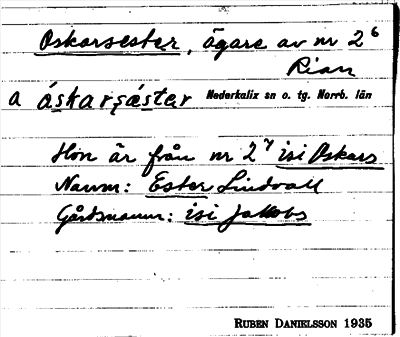 Oskarsester, ägare av nr 2⁶
Rian
a åskarșéster Nederkalix sn o. tg. Norrb. län
Hon är från nr 2⁷ isi Oskars
Namn: Ester Lindvall
Gårdsnamn: isi Jakobs
RUBEN DANIELSSON 1935